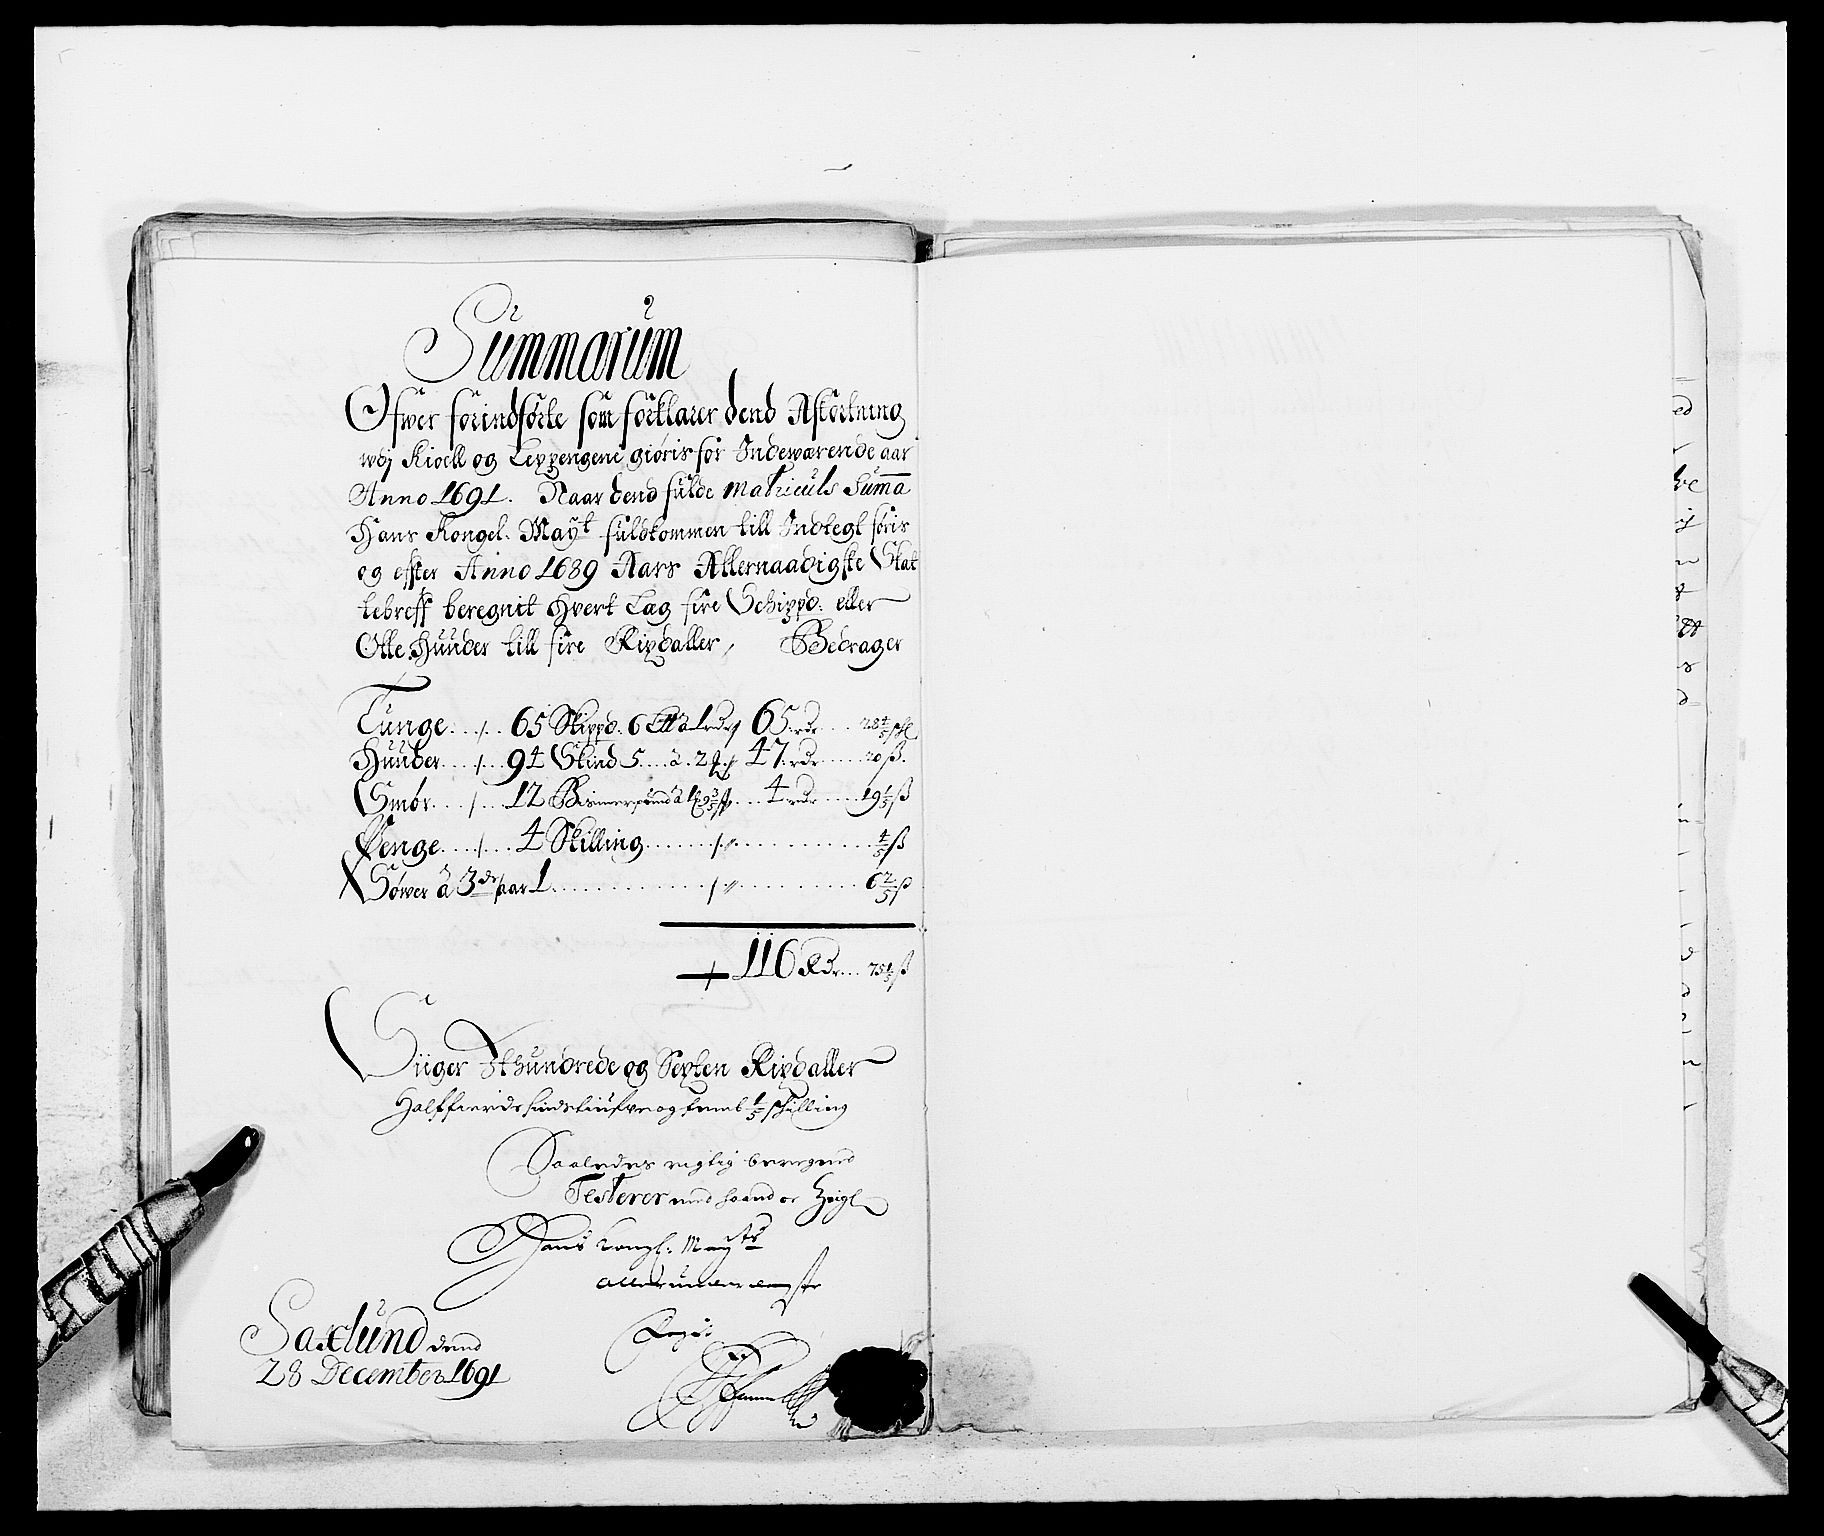 Summarum
Ofwer forindförte som förklarer dend Afkortning
wdj Kioell og Leppengene giöris for Indewærende aar
Anno 1691. Naar dend fulde Matriculs Summa
Hans Kongel. Mayt fuldkommen till Indtegt föris
og effter Anno 1689 Aars Allernaadigste Skat
tebreff beregnit hvert Læg fire Schippd: eller
Otte Huuder till fire Rixdaller, Bedrager
Tunge ... / .. 65 Skippd. 6 L℔ à 1 rdr / 65 rdr ... 28 4/5 sk
Huuder ... / ... 94 Skind 5 ... à 2 / 47 rdr ... 20 ß.
Smör ... / ... 12 Bismerpund à / ... 4 rdr ... 19 1/5 ß
Penge ... / ... 4 Skilling ... / „ ... 4/5 ß
Söwer à 3de par 1 ... / „ ... 6 2/5 ß
/ 116 Rdr ... 75 1/5 ß
Siiger Ithundrede og Sexten Rixdaller
Halffierdesindstiufve og femb 1/5 skilling
Saaledes rigtig beregned
Testerer med haand oc Zeigl
Hans Kongl: Mayts
allerunderdanigste
Saxlund dend
28 December 1691